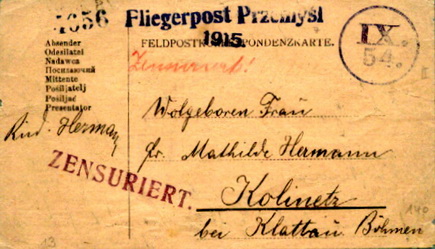 4656
Fliegerpost Przemyśl
1915.
FELDPOSTKORRESPONDENZKARTE.
Zensuriert!
IX.
54.
Absender
Odesílatel
Nadawca
Посилаючий
Mittente
Pošiljatelj
Pošiljač
Presentator
Rud. Hermann
ZENSURIERT.
Wolgeboren Frau
Fr. Mathilde Hermann
Kolinetz
bei Klattau Böhmen
13
140